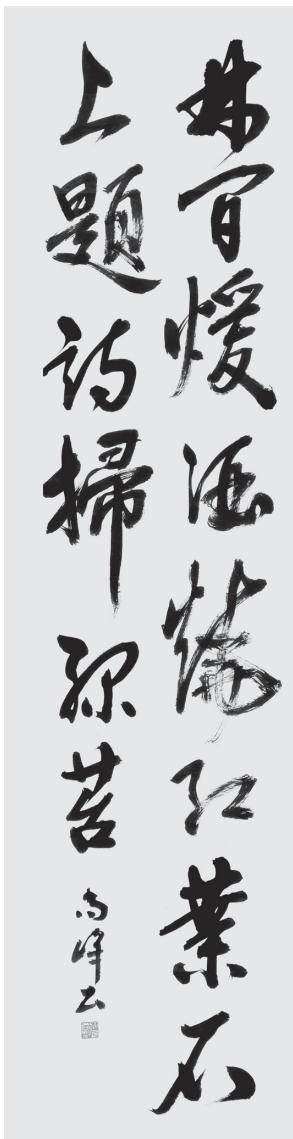 林間煖酒燒紅葉石
上題詩掃綠苔